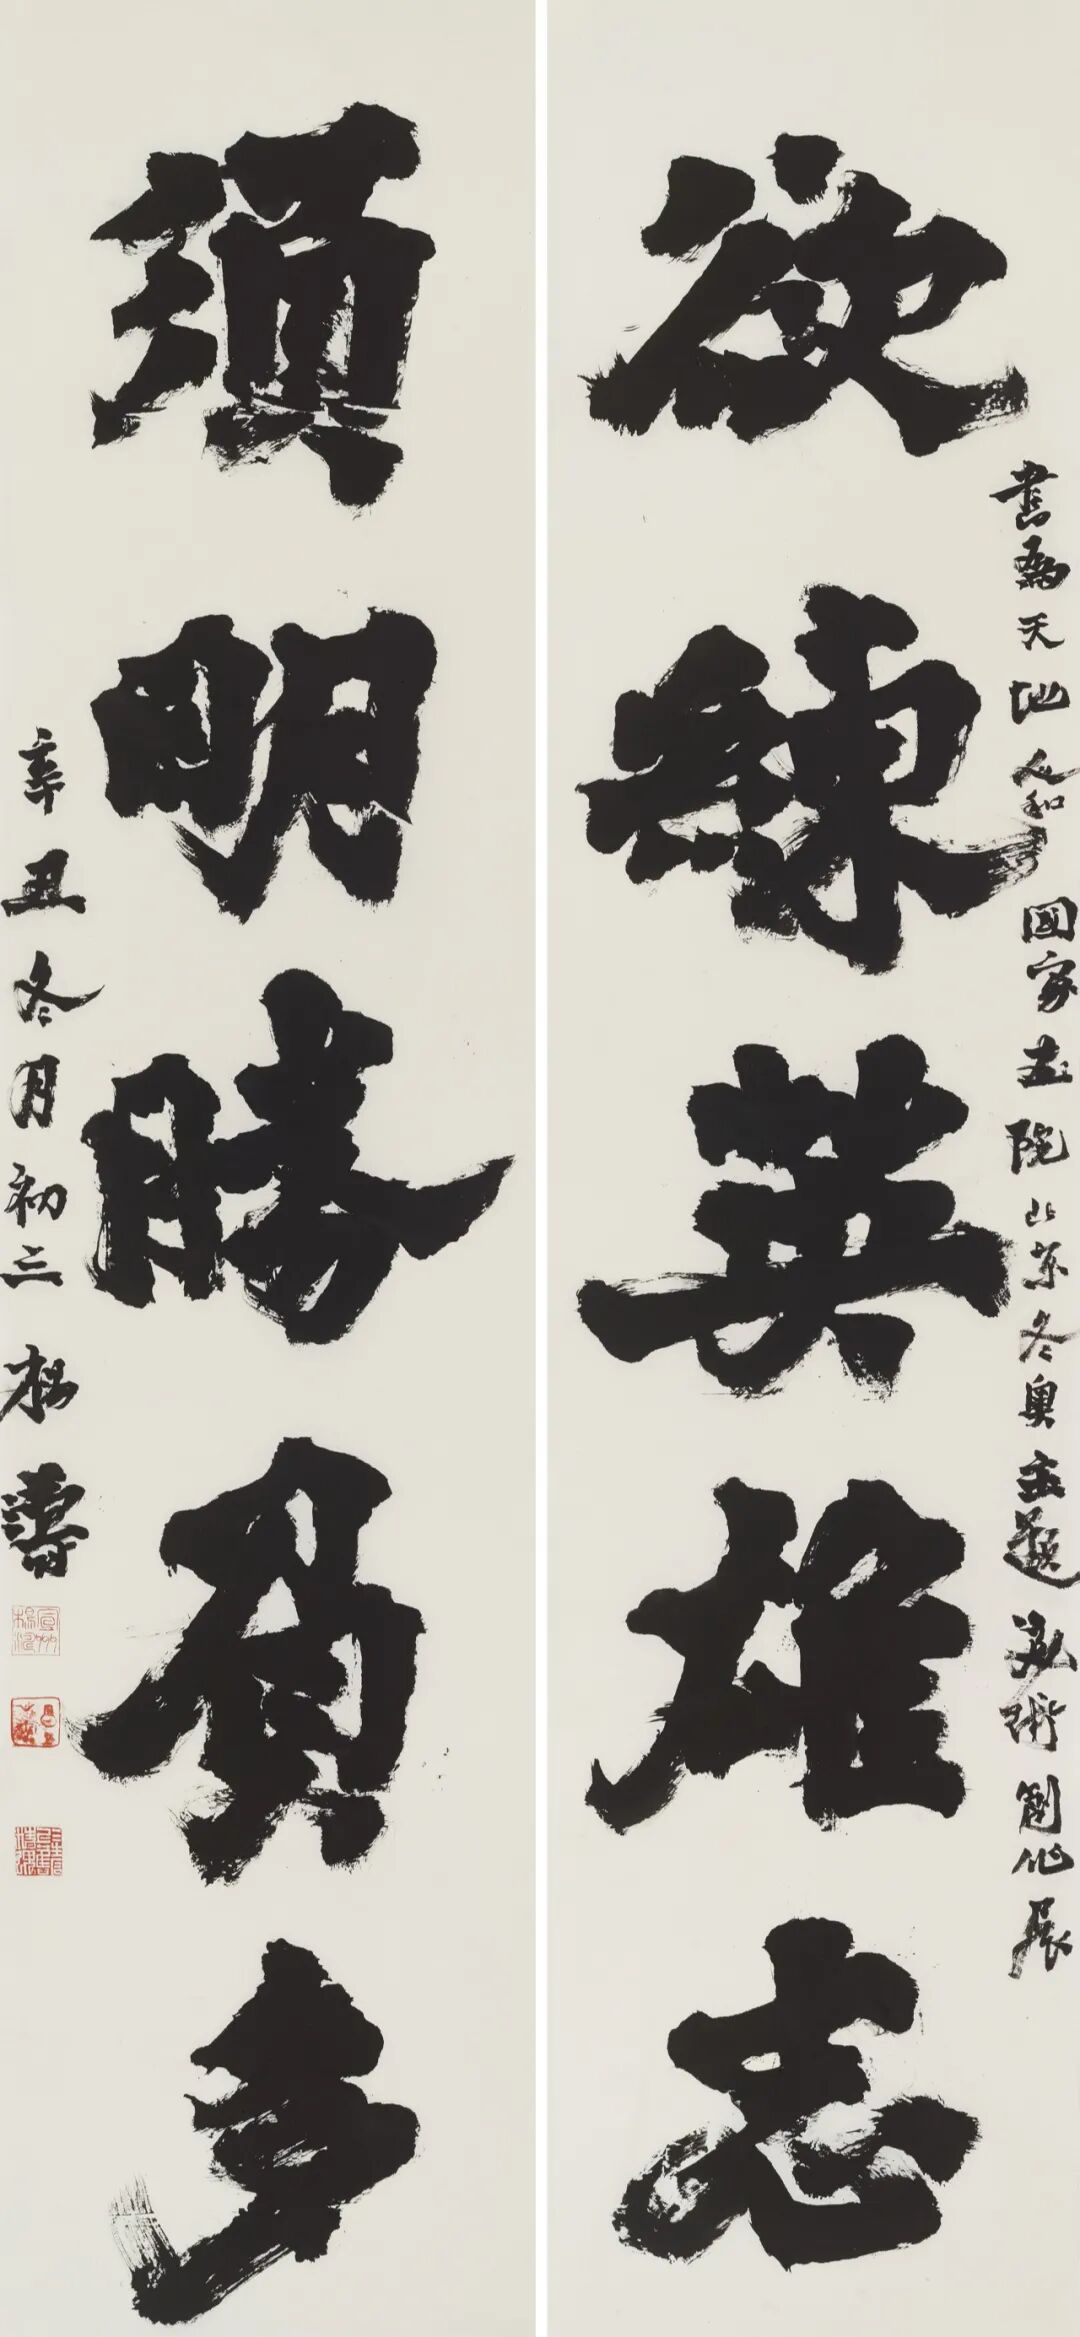 書爲天地人和國家畫院北京冬奥主題美術創作展
欲練英雄志
須明勝負多
辛丑冬月初三楊濤